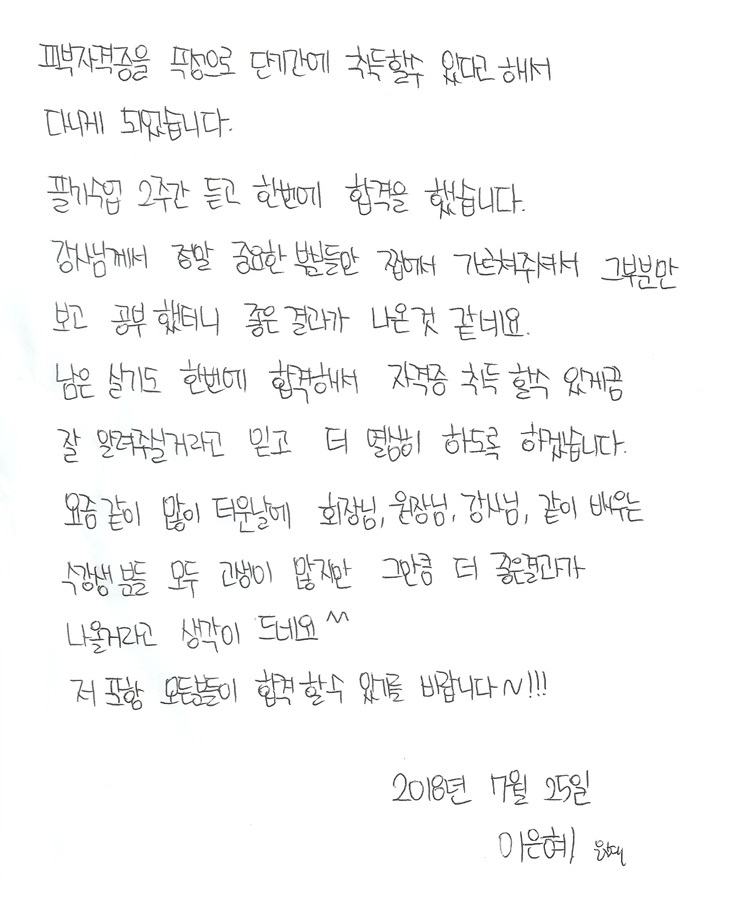 피부자격증을 특성으로 단기간에 취득할수 있다고 해서
다니게 되었습니다.
필기수업 2주간 듣고 한번에 합격을 했습니다.
강사님께서 정말 중요한 부분들만 찝어서 가르쳐주셔서 그부분만
보고 공부했더니 좋은결과가 나온것 같네요.
남은 실기도 한번에 합격해서 자격증 취득 할수 있게끔
잘 알려주실거라고 믿고 더 열심히 하도록 하겠습니다.
요즘같이 많이 더운날에 회장님, 원장님, 강사님, 같이 배우는
수강생분들 모두 고생이 많지만 그만큼 더 좋은결과가
나올거라고 생각이 드네요^^
저 포함 모든분들이 합격할수 있기를 바랍니다~!!!
2018년 7월 25일
이은혜